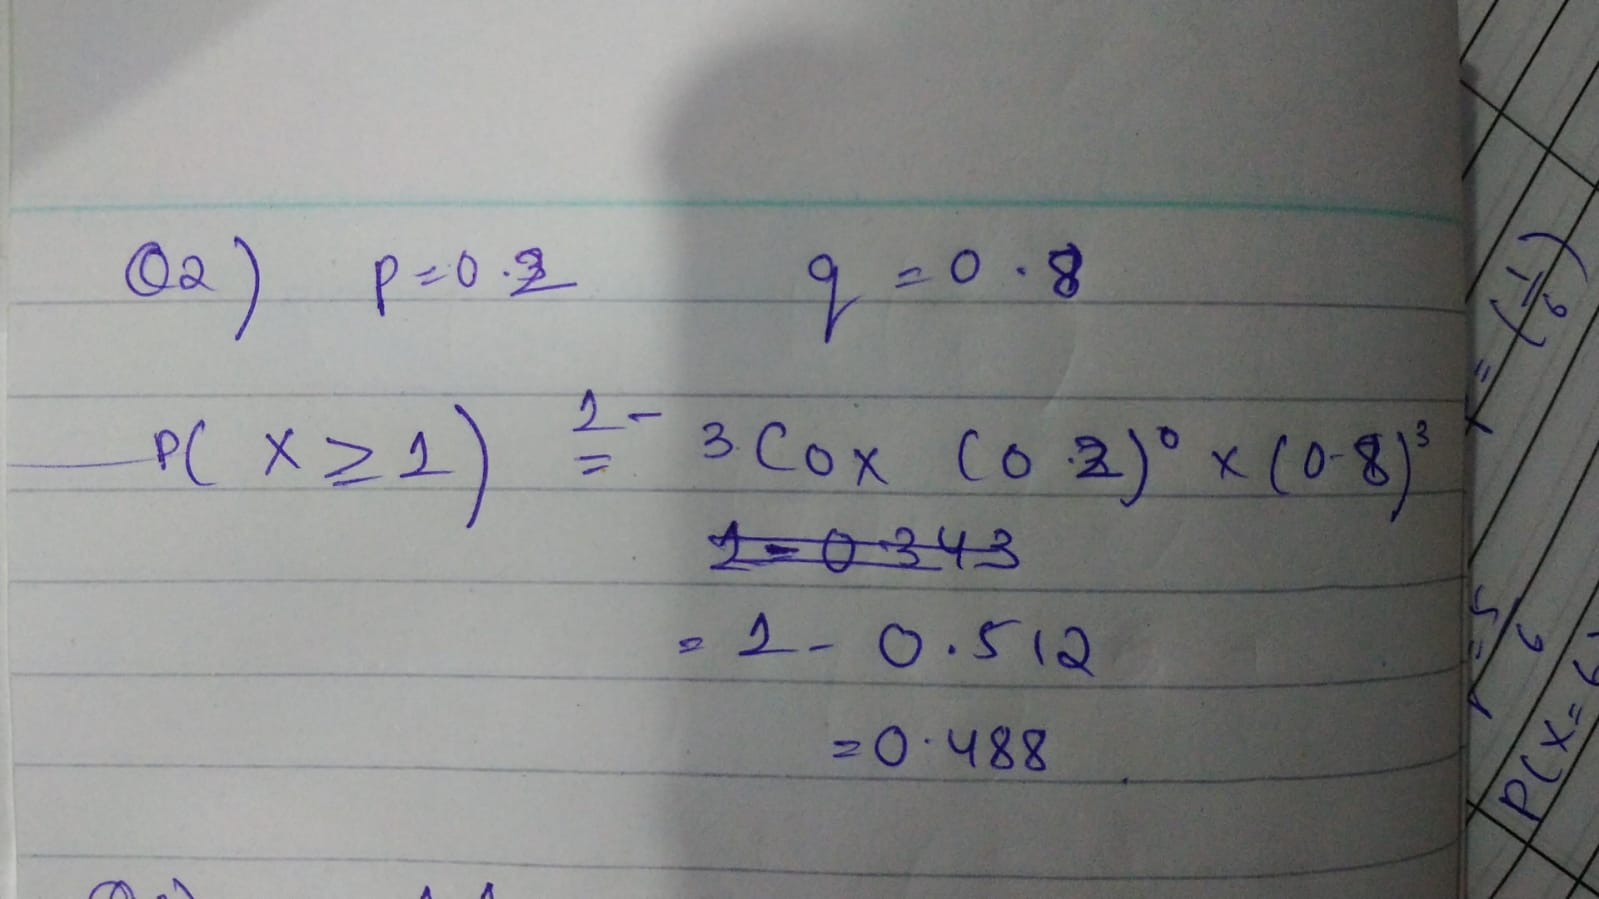 Q2) p=0.2 q=0.8
P( X ≥ 1) = 1- 3C0x (0.2)⁰ x (0.8)³
1-0.343
= 1- 0.512
=0.488
= (1/6)
= 5/6
P(X=